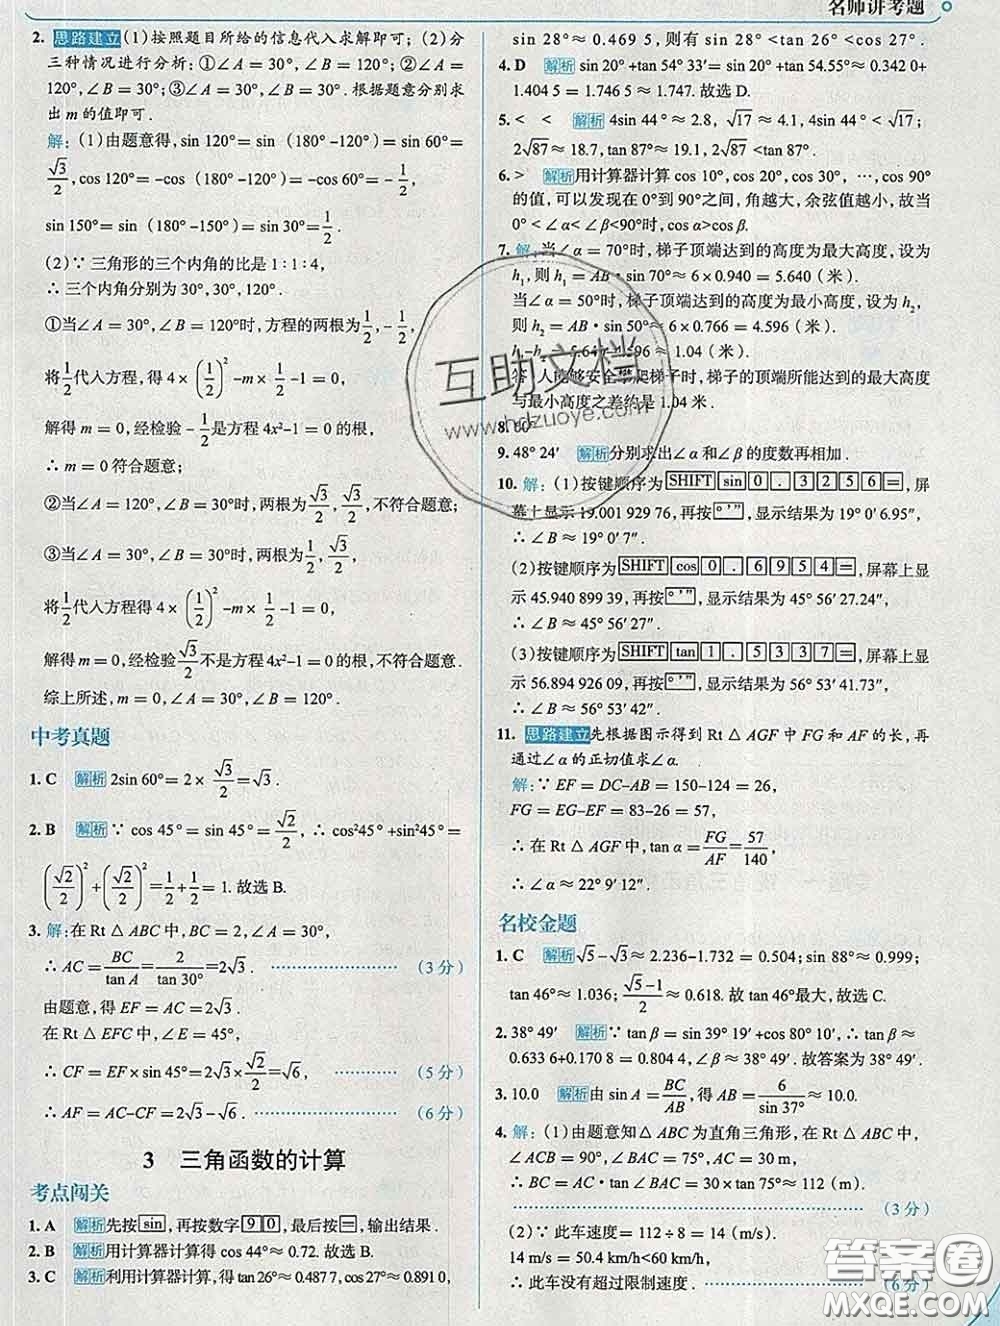 名师讲考题
2. 思路建立(1)按照题目所给的信息代入求解即可;(2)分
三种情况进行分析:①∠A = 30°,∠B = 120°;②∠A =
120°,∠B = 30°;③∠A = 30°,∠B = 30°.根据题意分别求
出 m 的值即可.
解:(1)由题意得,sin 120°= sin (180°-120°)= sin 60°=
√3/2,cos 120°= -cos (180°-120°)= -cos 60°= -1/2,
sin 150°= sin (180°-150°)= sin 30°= 1/2.
(2)∵ 三角形的三个内角的比是 1:1:4,
∴ 三个内角分别为 30°,30°,120°.
①当∠A = 30°,∠B = 120°时,方程的两根为1/2,-1/2,
将1/2代入方程,得 4×(1/2)²-m×1/2-1= 0,
解得 m = 0,经检验 -1/2是方程 4x²-1= 0 的根,
∴ m = 0 符合题意;
②当∠A = 120°,∠B = 30°时,两根为√3/2,√3/2,不符合题意;
③当∠A = 30°,∠B = 30°时,两根为1/2,√3/2,
将1/2代入方程得 4×(1/2)²-m×1/2-1= 0,
解得 m = 0,经检验√3/2不是方程 4x²-1= 0 的根,不符合题意.
综上所述,m = 0,∠A = 30°,∠B = 120°.
中考真题
1. C 解析 2sin 60°= 2 × √3/2=√3.
2. B 解析 ∵ cos 45°= sin 45°=√2/2,∴ cos²45°+sin²45°=
(√2/2)²+(√2/2)²=1/2+1/2= 1. 故选 B.
3. 解:在 Rt △ ABC 中,BC = 2,∠A = 30°,
∴ AC =BC/tan A=2/tan 30°= 2√3 . (3 分)
由题意,得 EF = AC = 2√3 .
在 Rt △ EFC 中,∠E = 45°,
∴ CF = EF × sin 45°= 2√3 ×√2/2=√6, (5 分)
∴ AF = AC-CF = 2√3 -√6 . (6 分)
3 三角函数的计算
考点闯关
1. A 解析 先按sin,再按数字90,最后按=,输出结果.
2. B 解析 用计算器计算得 cos 44°≈ 0.72. 故选 B.
3. C 解析 利用计算器计算,得 tan 26°≈ 0.487 7,cos 27°≈ 0.891 0,
sin 28°≈ 0.469 5,所以有 sin 28° <tan 26° <cos 27°.
4. D 解析 sin 20°+tan 54° 33′= sin 20°+tan 54.55°≈ 0.342 0+
1.404 5 = 1.746 5 ≈ 1.747. 故选 D.
5. < < 解析 4sin 44 °≈ 2.8, √17 ≈ 4.1, 4sin 44° <√17;
2√87 ≈ 18.7, tan 87°≈ 19.1, 2√87 <tan 87°.
6. > 解析 用计算器计算 cos 10°,cos 20°,cos 30°, …,cos 90°
的值,可以发现在 0°到 90°之间,角越大,余弦值越小,故当
0° <∠α <∠β<90°时,cos α>cos β.
7. 解:当∠α = 70°时,梯子顶端达到的高度为最大高度,设为
h₁,则 h₁= AB · sin 70°≈ 6 × 0.940 = 5.640 (米).
当∠α = 50°时,梯子顶端达到的高度为最小高度,设为 h₂,
则 h₂= AB · sin 50°≈ 6 × 0.766 = 4.596 (米).
h₁-h₂= 5.640-4.596 ≈ 1.04 (米).
答:人能够安全攀爬梯子时,梯子的顶端所能达到的最大高度
与最小高度之差约是 1.04 米.
8. 60°
9. 48° 24′ 解析 分别求出∠α 和∠β 的度数再相加.
10. 解:(1)按键顺序为 SHIFT sin 0 . 3 2 5 6 =,屏
幕上显示 19.001 929 76,再按 °′″,显示结果为 19° 0′ 6.95″,
∴ ∠B ≈ 19° 0′7″.
(2)按键顺序为 SHIFT cos 0 . 6 9 5 4 =,屏幕上显
示 45.940 899 39,再按 °′″,显示结果为 45° 56′ 27.24″,
∴ ∠B ≈ 45° 56′ 27″.
(3)按键顺序为 SHIFT tan 1 . 5 3 3 7 =,屏幕上显示
56.894 926 09,再按 °′″,显示结果为 56° 53′ 41.73″,
∴ ∠B ≈ 56° 53′ 42″.
11. 思路建立先根据图示得到 Rt △ AGF 中 FG 和 AF 的长,再
通过∠α 的正切值求∠α.
解:∵ EF = DC-AB = 150-124 = 26,
FG = EG-EF = 83-26 = 57,
∴ 在 Rt △ AGF 中,tan α =FG/AF=57/140,
∴ ∠α ≈ 22° 9′ 12″.
名校金题
1. C 解析 √5-√3 ≈ 2.236-1.732 = 0.504; sin 88°≈ 0.999;
tan 46°≈ 1.036; √5-1/2 ≈ 0.618. 故 tan 46°最大,故选 C.
2. 38° 49′ 解析 ∵ tan β = sin 39° 19′+cos 80° 10′,∴ tan β ≈
0.633 6+0.170 8 = 0.804 4,∠β ≈ 38° 49′. 故答案为 38° 49′.
3. 10.0 解析 由 sin A =BC/AB,得 AB =6/sin 37°≈ 10.0.
4. 解:(1)由题意知△ ABC 为直角三角形,在 Rt △ ABC 中,
∠ACB = 90°,∠BAC = 75°,AC = 30 m,
∴ BC = AC · tan∠BAC = 30 × tan 75°≈ 112 (m).
(3 分)
(2)∵ 此车速度= 112 ÷ 8 = 14 (m/s).
14 m/s = 50.4 km/h<60 km/h,
∴ 此车没有超过限制速度. (6 分)
互助文档
www.hdzuoye.com
答案圈
MXQE.COM